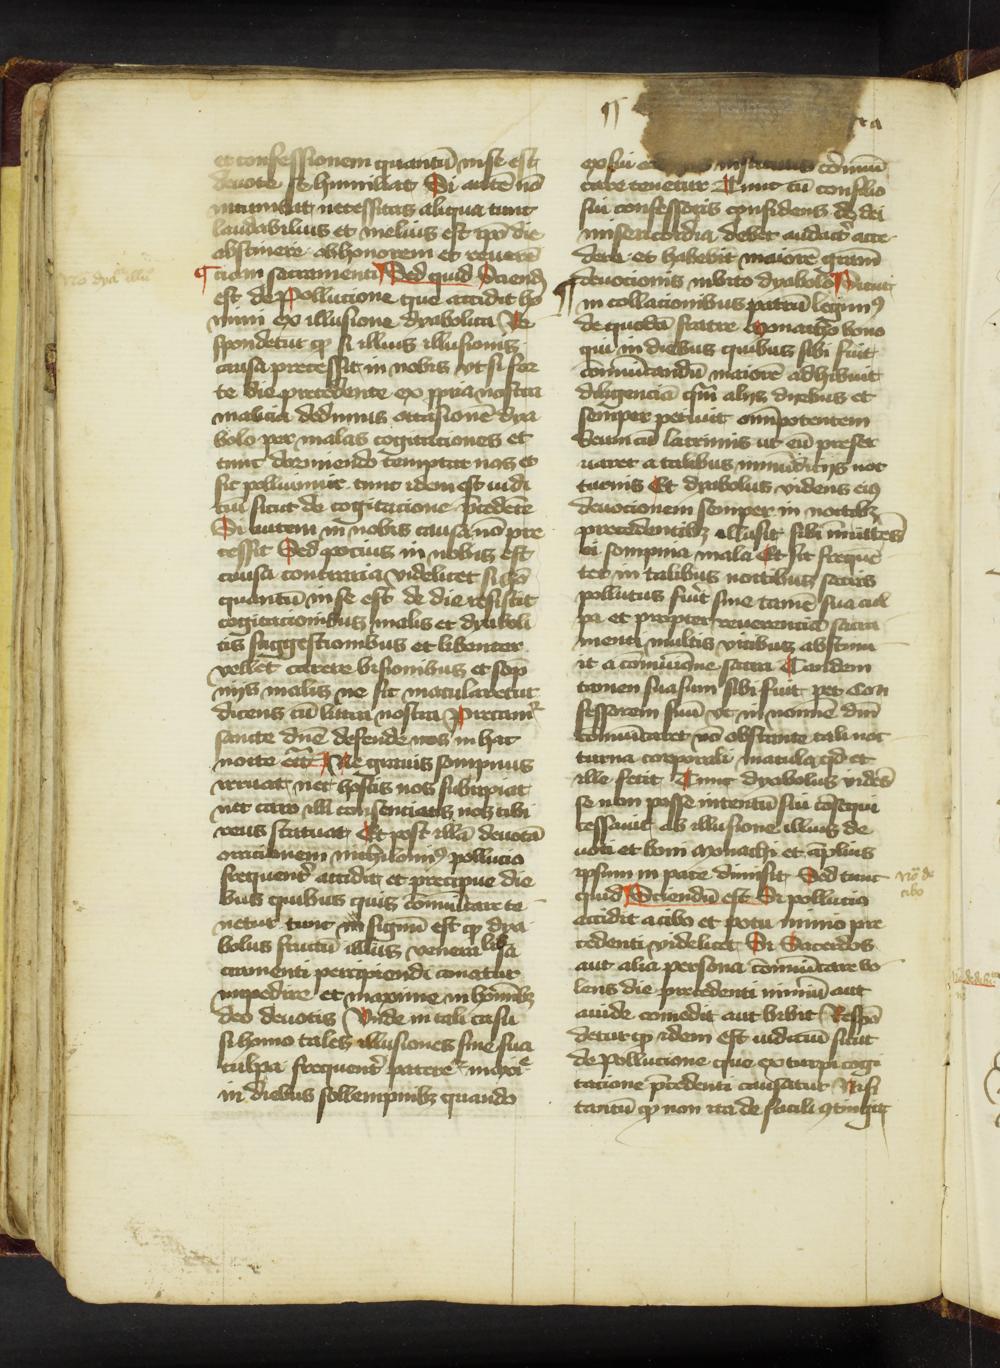 et confessionem quantū in se est
deuote se humiliat Si autē nō
incumbit necessitas aliqua tunc
laudabilius et melius est ipō die
abstinere ob honorem et reuerē
ciam sacramenti Sed quid Sciend
est de Pollucione que accidit ho
mini ex illusione dyabolica Re
spondetur qp si illius illusionis
causa precessit in nobis vt si for
te die precedente ex ppria nostra
malicia dedimus occasionē dya
bolo per malas cogitaciones et
tunc dormiendo temptat nos et
sic polluimur tunc idem est iudi
ciū sicut de cogitacione p̄cedēte
Si autem in nobis causa nō pre
cessit Sed pocius in nobis est
causa contraria videlicet si hō
quantū in se est de die resistit
cogitacionibus malis et dyaboli
cis suggestionibus et libenter
vellet carere visionibus et sōp
nijs malis ne sic macularetur
dicens cū littera nostra Precamr
sancte dne defende nos in hac
nocte etc̄ Ne grauis sompnus
irruat nec hostis nos subripiat
nec caro illi consenciens nos tibi
reus statuat Et post illā deuotā
oracionem nichilominꝰ pollucio
frequent̄ accidit et precipue die
bus quibus quis cōmūicare te
netur tunc signū est qp dya
bolus fructū illius venerabilis sa
cramenti percipiendi conatur
impedire et maxime in hōmibꝫ
deo deuotis Vnde in tali casu
si homo tales illusiones sine sua
culpa frequent̄ patere maxie
in diebus sollempnibꝫ quando
ex sui institutis cōmūi
care tenetur Tunc cū consilio
sui confessoris confidens de dei
misericordia debet audact̄ acce
dere et habebit maiorē grām
deuocionis inuito dyabolo Sicut
in collacionibus patrū legimꝰ
de quodā fratre Monacho bono
qui in diebus quibus sibi fuit
cōmūicandū maiorē adhibuit
diligenciā qm̄ alijs diebus et
semper petiuit omīpotentem
deum cū lacrimis ut eū preser
uaret a talibus inmūdicijs noc
turnis Et dyabolus videns eiꝰ
deuocionem semper in noctibꝫ
precedentibꝫ illusit sibi inmittēs
ei sompnia mala Et sic freque
ter in talibus noctibus sacris
pollutus fuit̄ sine tamē sua cul
pa et propter reuerenciā sacra
menti multis vicibus abstinu
it a cōmūione sacra Tandem
tamen suasum sibi fuit per Con
fessorem suū vt in nomīe dnī
cōmūicaret nō obstante tali noc
turna corporali macula qd et
ille fecit Tunc dyabolus vidēs
se non posse intentū suū cōsequi
cessauit ab illusione illius de
uoti et boni Monachi et āplius
ipsum in pace dimisit Sed tunc
quid Sciendū est Si pollucio
accidit a cibo et potu nimio pre
cedenti videlicet Si Sacerdos
aut alia persona cōmūicare vo
lens die precedenti nimiū aut
auide comedit aut bibit Respō
detur qp idem est iudiciū sicut
de pollucione que ex turpi cogi
tacione p̄cedenti causatur Nisi
tantū qp non ita de facili ꝯtingit